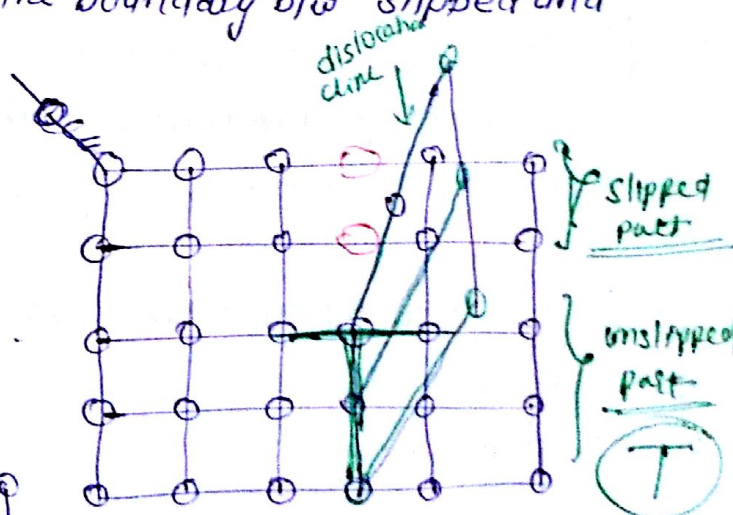 the boundary b/w slipped and
dislocation
line
slipped
part
unslipped
part
T